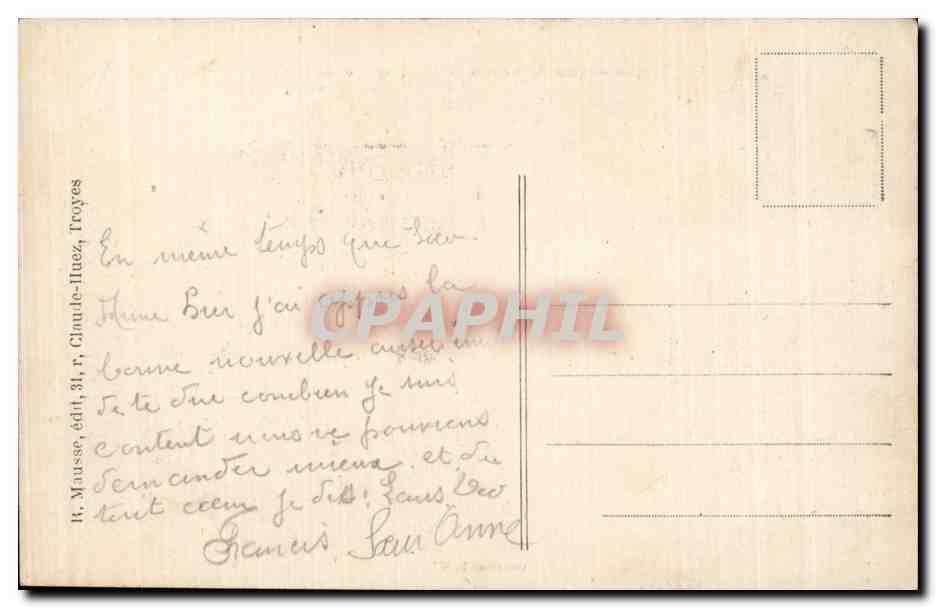 R. Mausse, édit, 31, r, Claude-Huez, Troyes
En même temps que Sœur
Anne hier j'ai appris la
bonne nouvelle aussi
de te dire combien je suis
content nous ne pouvions
demander mieux et du
tout cœur je dis:
Francis Sœur Anne
CPAPHIL